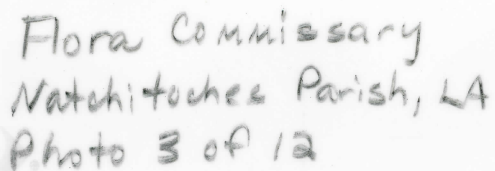 Flora Commissary
Natchitoches Parish, LA
Photo 3 of 12